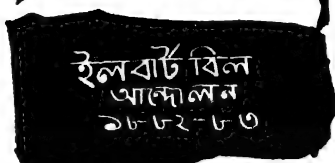 ইলবার্ট বিল
আন্দোলন
১৮৮২-৮৩